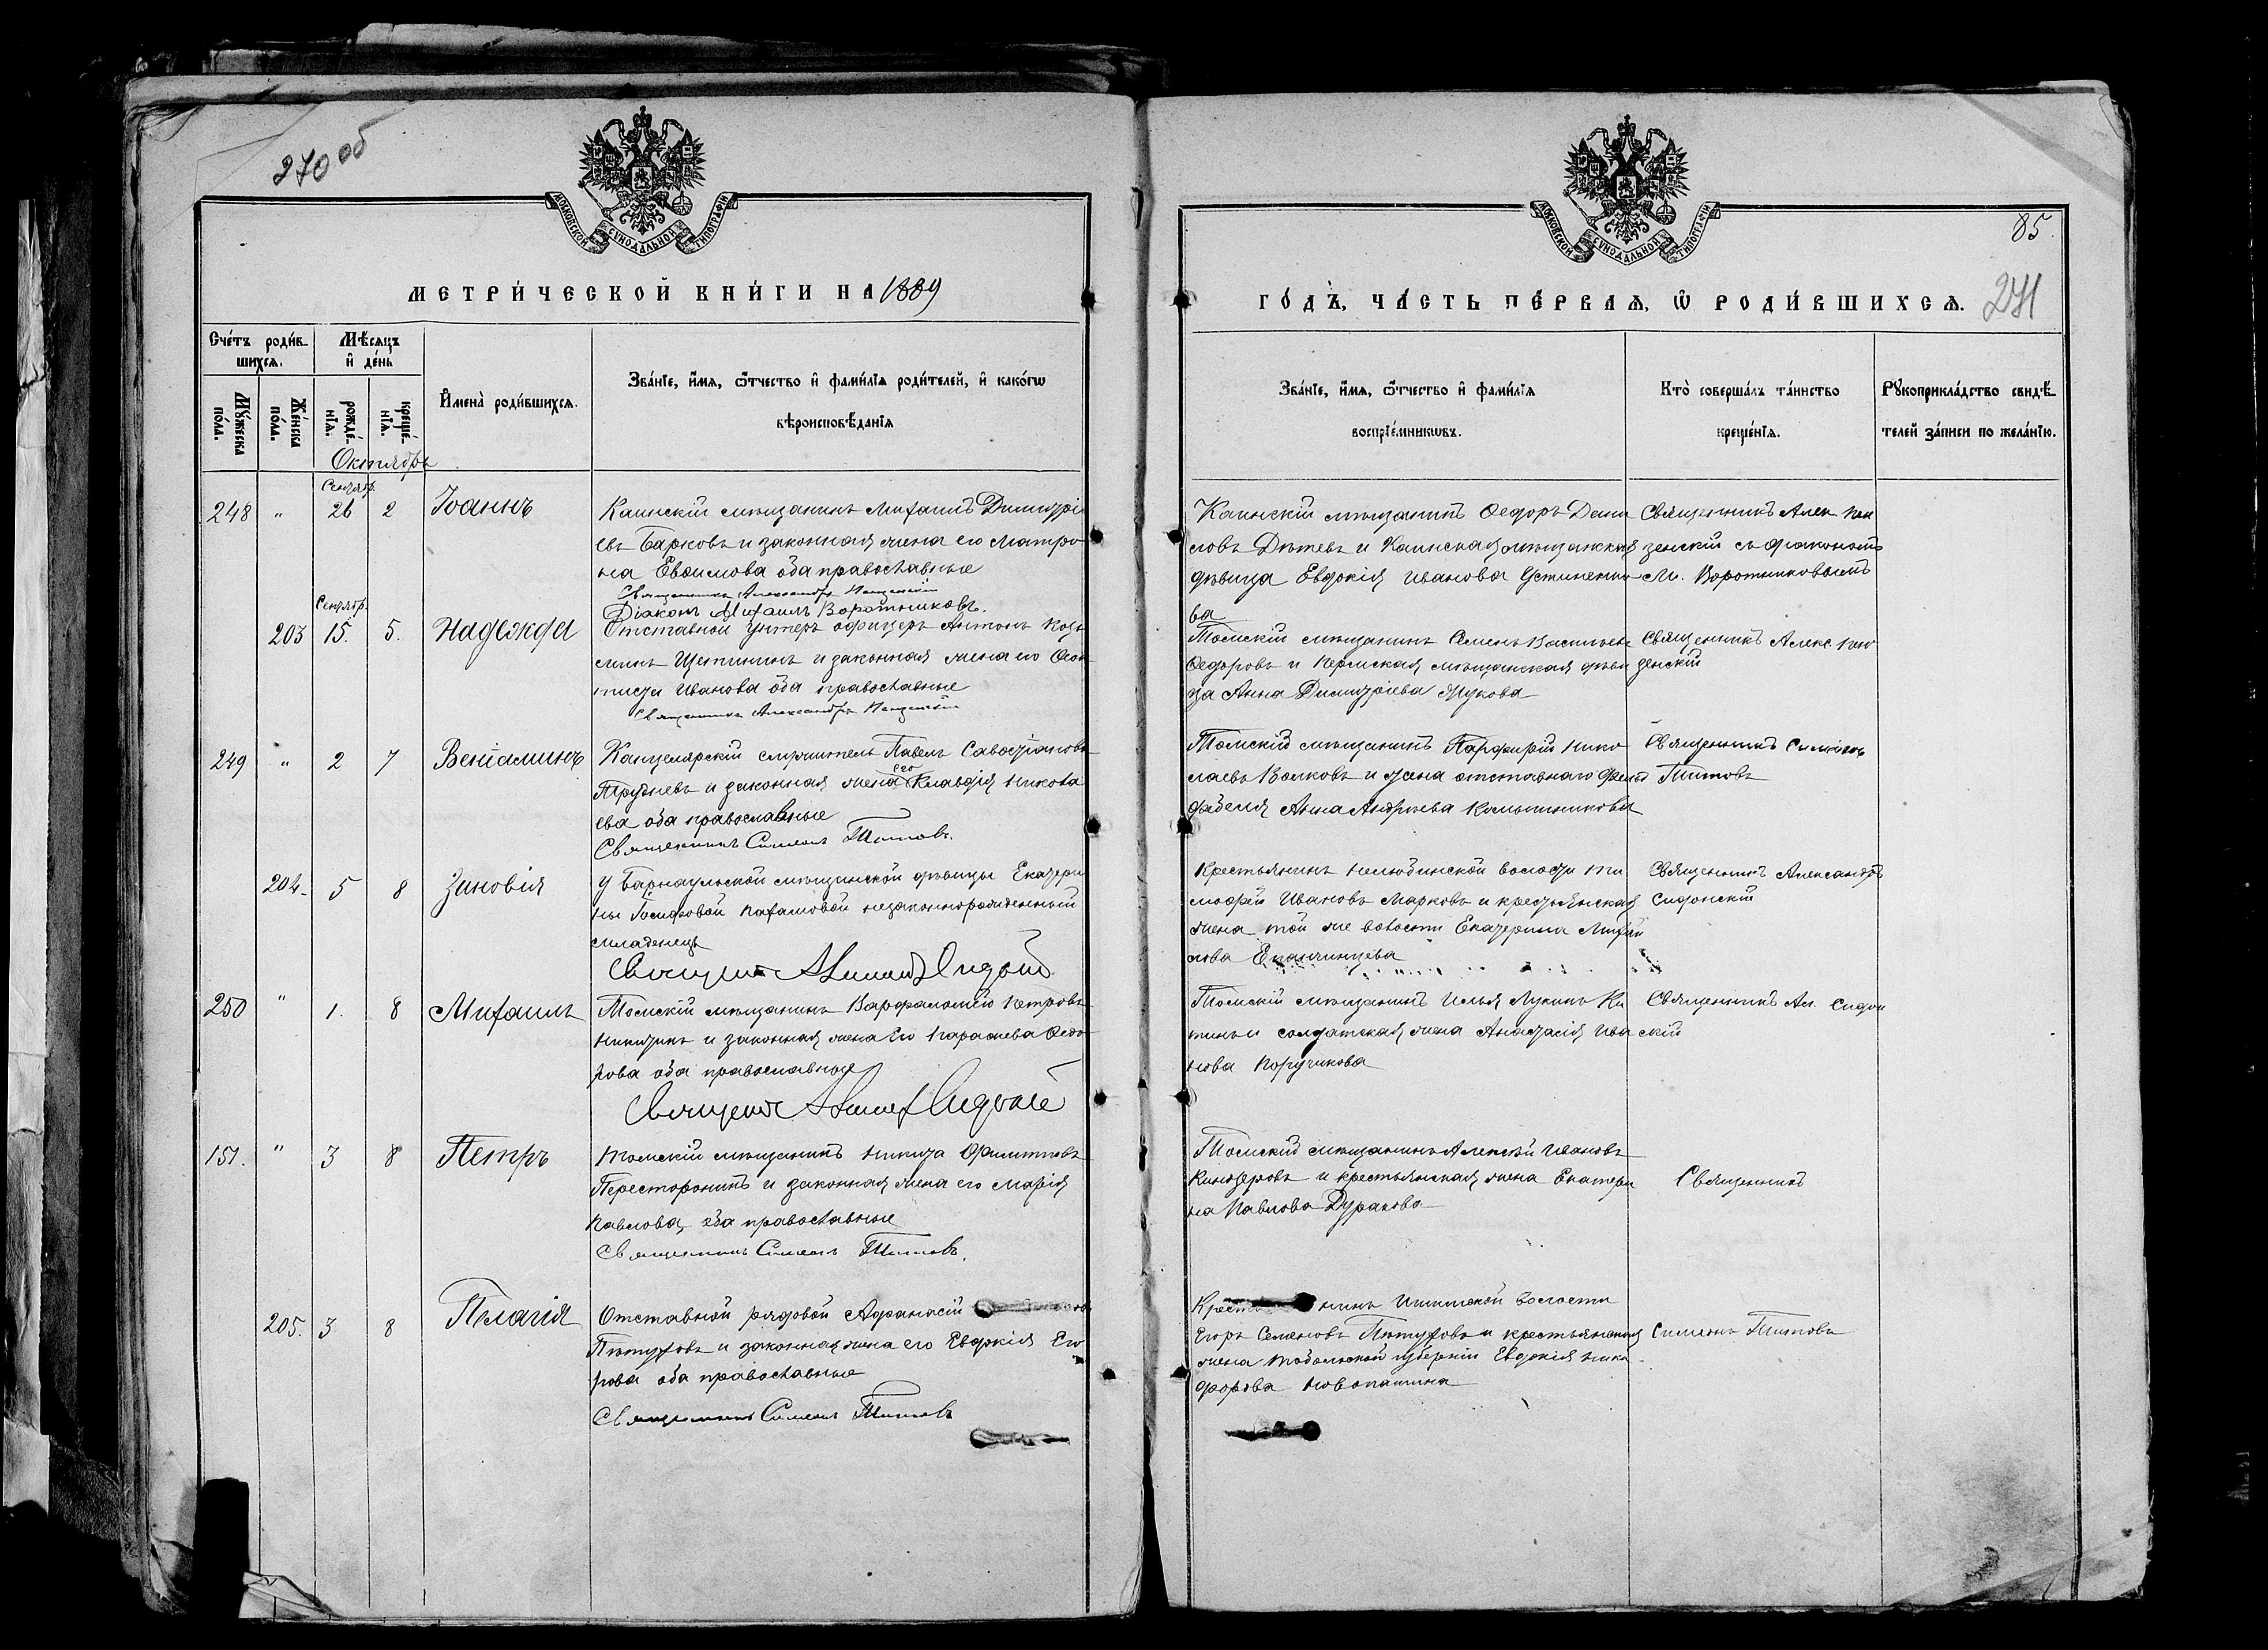 270 об
МОСКОВСКОЙ СѴНОДАЛЬНОЙ ТИПОГРАФІИ
МЕТРИ́ЧЕСКОЙ КНИ́ГИ НА 1889
Сче́тъ роди́в-
шихся.
Мѣ́сяцъ
и҆ де́нь
Мꙋ́жеска
по́ла.
Же́нска
по́ла.
рожде́-
нїя.
креще́-
нїя.
И҆мена̀ роди́вшихся.
Зва́нїе, и҆́мя, ѻ҆́тчество и҆ фами́лїя роди́телей, и҆ како́гѡ
вѣроисповѣ́данїя
Октябрь
Сентяр.
248 " 26 2 Іоаннъ Каинскій мѣщанинъ Михаилъ Димитрі
евъ Барковъ и законная жена его Матро
на Евѳимова оба православные
Священникъ Александръ
Діаконъ Михаилъ Воротниковъ.
Сентябр.
203 15. 5. Надежда Отставной унтеръ офицеръ Антонъ Козь
минъ Щетининъ и законная жена его Ѳеок
тиста Иванова оба православные
Священникъ Александръ
249 " 2 7 Веніаминъ Канцелярскій служитель Павелъ Савостіановъ
и законная жена его Клавдія Никола
ева оба православные
Священникъ Симеонъ Титовъ.
204. 5 8 Зиновія У Барнаульской мѣщанской дѣвицы Екатери
ны Іосифовой незаконнорожденный
младенецъ
Священникъ
250 " 1. 8 Михаилъ Томскій мѣщанинъ Варфаломей Петровъ
Никитинъ и законная жена его Параскева Ѳедо
рова оба православные
Священникъ
151. " 3 8 Петръ Томскій мѣщанинъ Никита Филипповъ
Пересторонинъ и законная жена его Марія
Павлова, оба православные
Священникъ Симеонъ Титовъ.
205. 3 8 Пелагія Отставной рядовой Афанасій
Пѣтуховъ и законная жена его Евдокія Его
рова оба православные
Священникъ Симеонъ Титовъ
МОСКОВСКОЙ СѴНОДАЛЬНОЙ ТИПОГРАФІИ
85.
ГО́ДЪ, ЧА́СТЬ ПЕ́РВАЯ, Ѡ҆ РОДИ́ВШИХСЯ. 271
Зва́нїе, и҆́мя, ѻ҆́тчество и҆ фами́лїя
воспрїе́мникѡвъ.
Кто̀ соверша́лъ та́инство
креще́нїя.
Рꙋкоприкла́дство свидѣ́-
телей за́писи по жела́нїю.
Каинскій мѣщанинъ Ѳедоръ Дани
ловъ и Каинская мѣщанская
дѣвица Евдокія Иванова Устиненко
ва
Священникъ Алек.
зенскій съ діакономъ
М. Воротниковымъ
Томскій мѣщанинъ Семенъ Васильевъ
Ѳедоровъ и Пермская мѣщанская дѣви
ца Анна Димитріева Жукова
Священникъ Алекс.
зенскій
Томскій мѣщанинъ Парфирій Нико
лаевъ Волковъ и жена отставного фельд
фебеля Анна Андреева
Священникъ Симеонъ
Титовъ
Крестьянинъ Нелюбинской волости Ти
мофей Ивановъ Марковъ и крестьянская
жена той же волости Екатерина Михай
лова Епанчинцева
Священникъ Александръ
Сидонскій
Томскій мѣщанинъ Илья Лукинъ Ки
тинъ и солдатская жена Анастасія Ива
нова Поручикова
Священникъ Ал. Сидон
скій
Томскій мѣщанинъ Алексѣй Ивановъ
и крестьянская жена Екатери
на Павлова Дуракова
Священникъ
Крестьянинъ Ишимской волости
Егоръ Семеновъ Пѣтуховъ и крестьянская
жена Тобольской губерніи Евдокія Ники
форова Новопашина
Симеонъ Титовъ